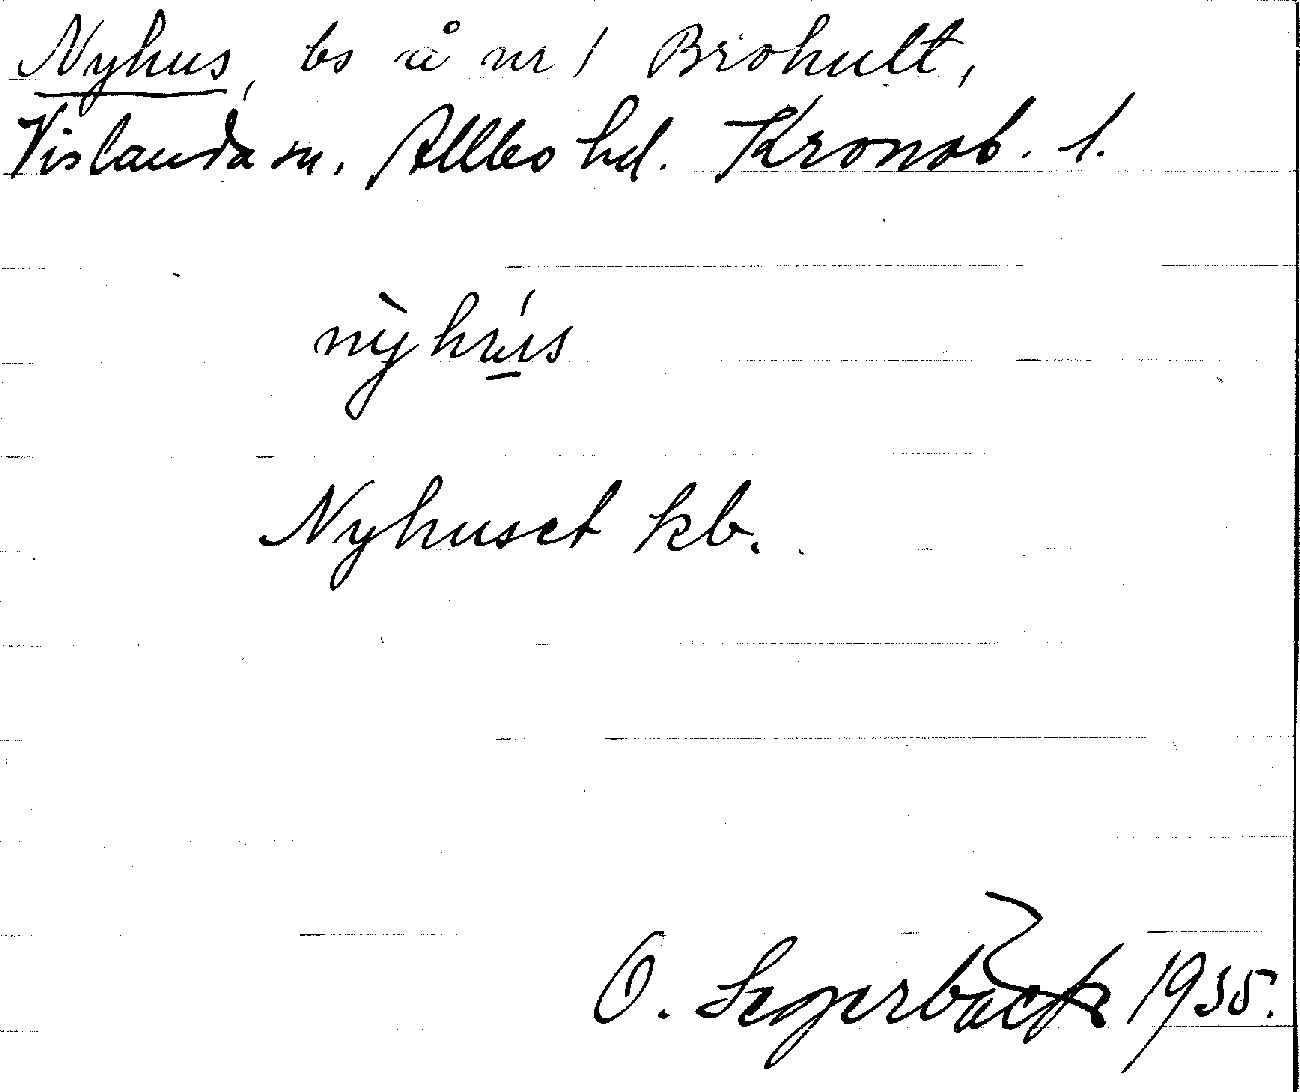 Nyhus, bs å nr 1 Brohult,
Vislanda sn. Allbo hd. Kronob. l.
nỳhú̲s
Nyhuset kb.
O. Segerbäck 1935.